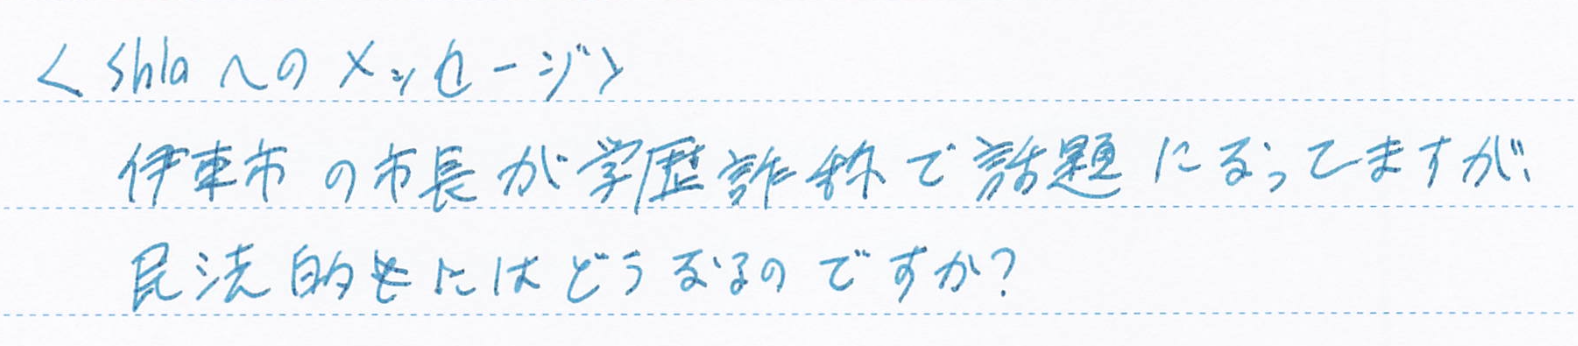 <shlaへのメッセージ>
伊東市の市長が学歴詐称で話題になってますが、
民法的にはどうなるのですか?